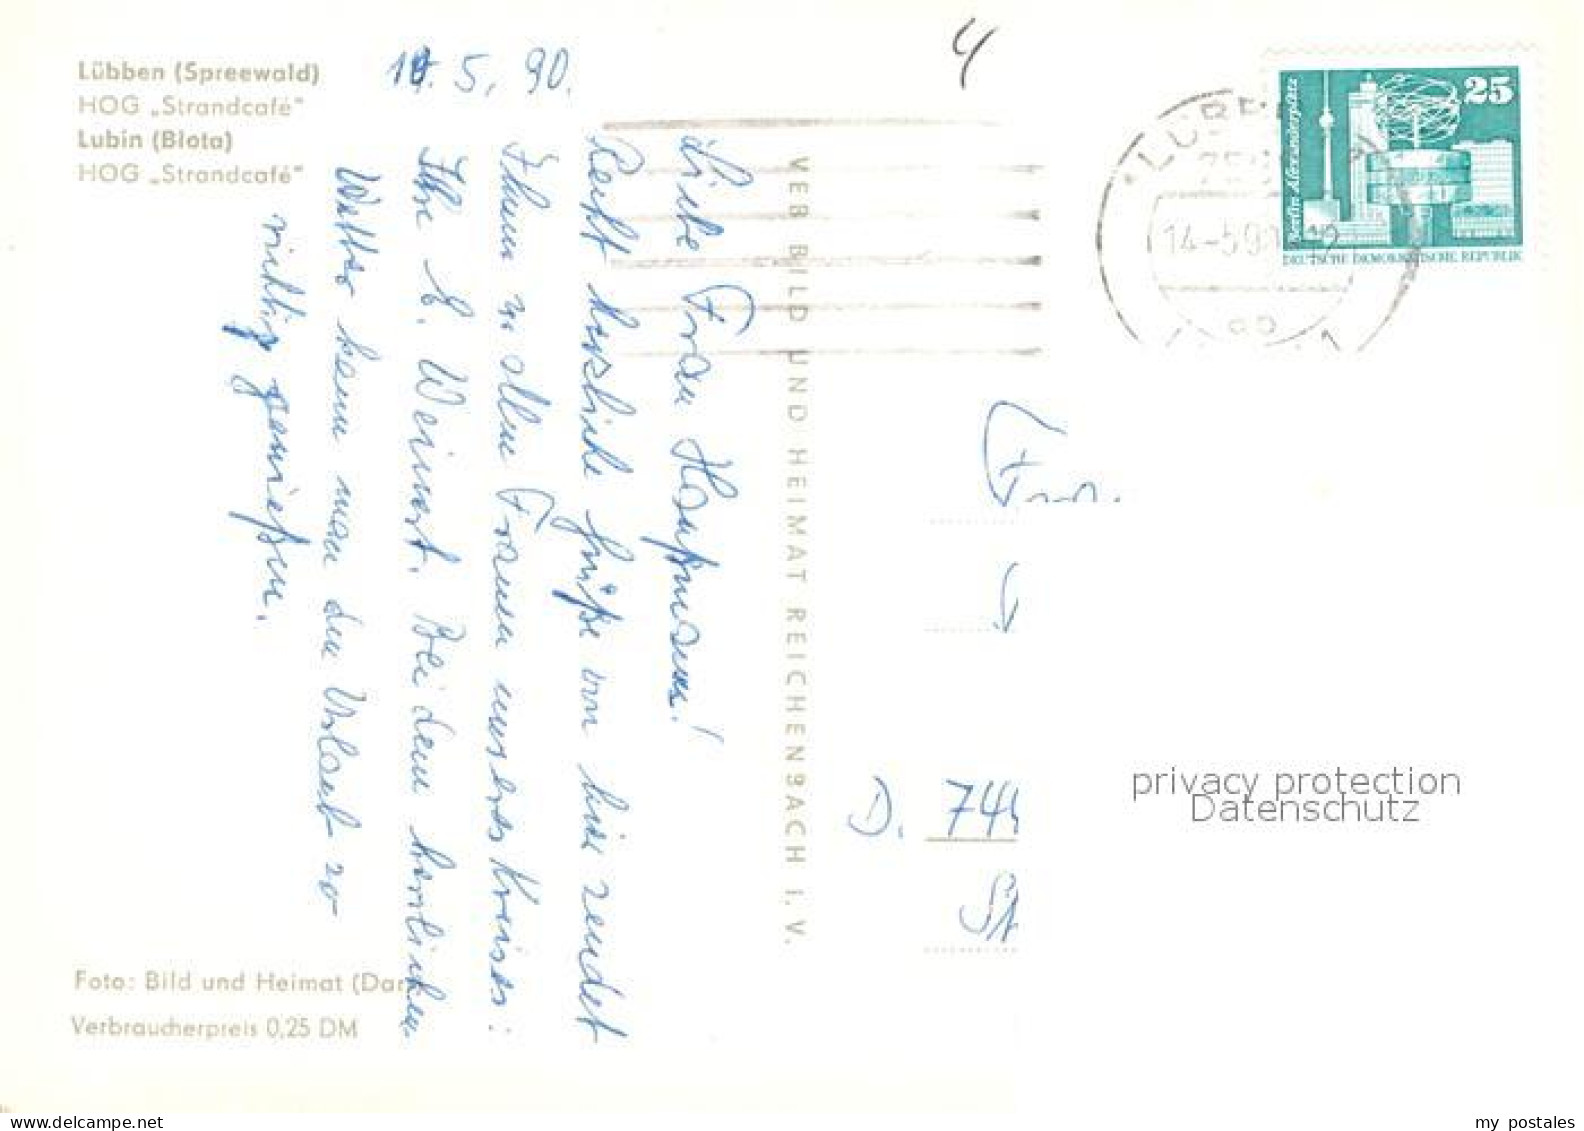 Lübben (Spreewald)
HOG „Strandcafé"
Lubin (Błota)
HOG „Strandcafé"
5. 90.
4
Liebe Frau Hauptmann!
Recht herzliche Grüße von hier sendet
Ihnen u. allen Frauen unseres Kreises:
Ihre E. Weinert. Bei dem herrlichen
Wetter kann man den Urlaub so
richtig genießen.
VEB BILD UND HEIMAT REICHENBACH I. V.
25
Berlin-Alexanderplatz
DEUTSCHE DEMOKRATISCHE REPUBLIK
14.-5.90
D.
privacy protection
Datenschutz
Foto: Bild und Heimat (Dar
Verbraucherpreis 0,25 DM
my postales